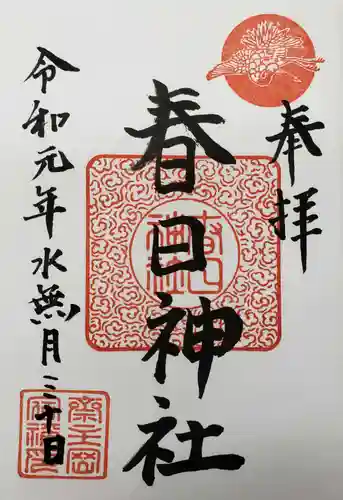 奉拝
春日神社
令和元年水無月三十日